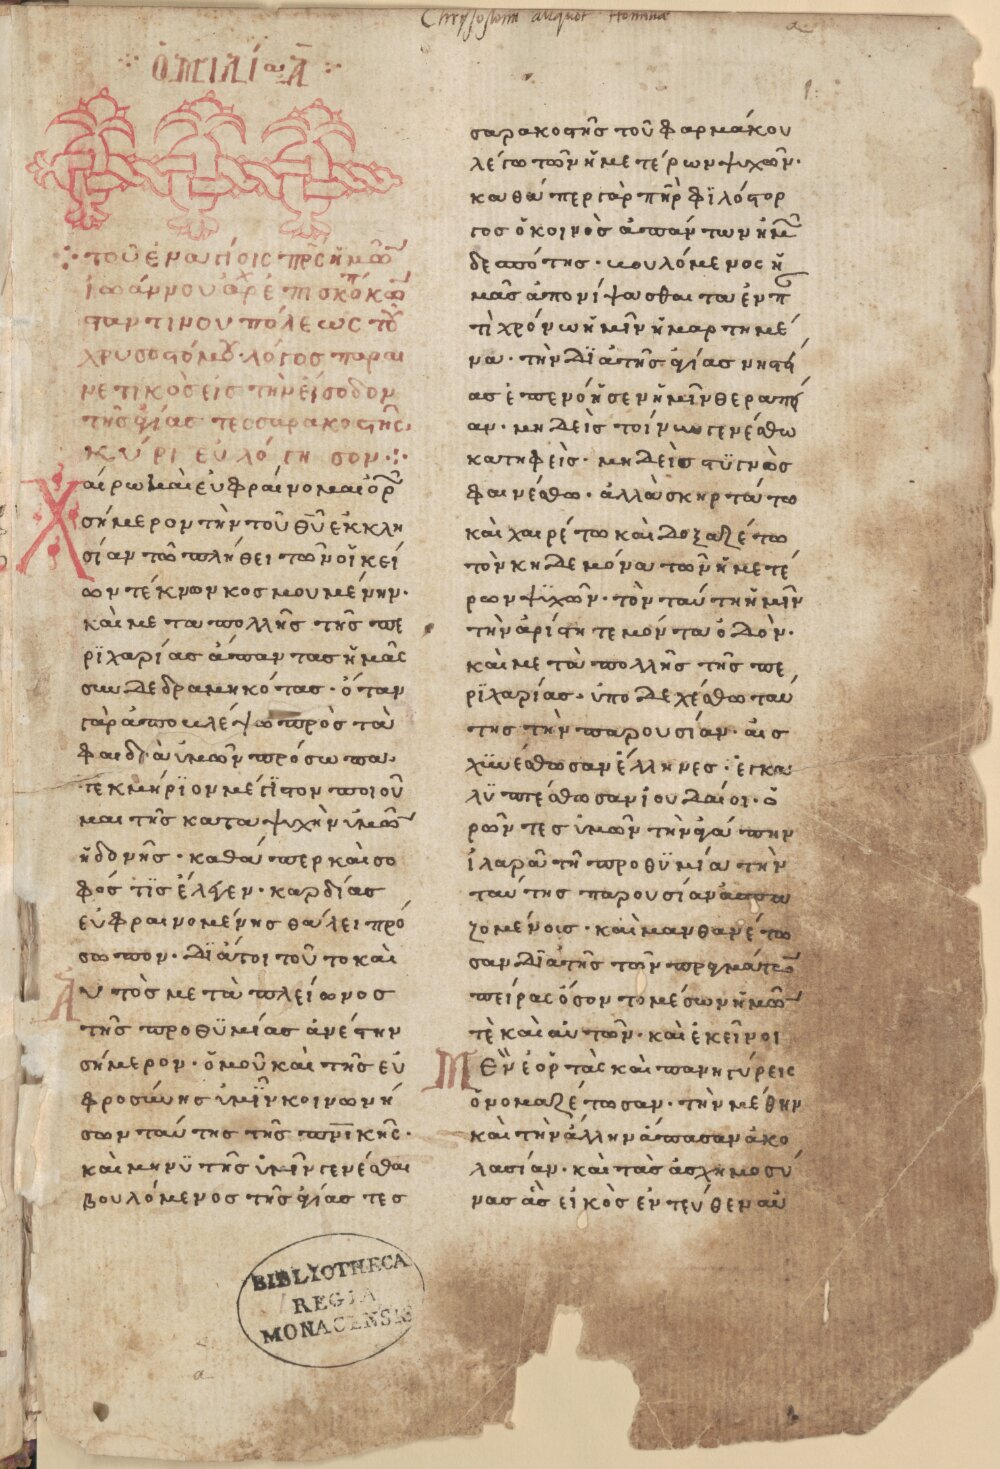 Chrysostomi aliquot Homiliae
a
1.
ὁμιλία Α
τοῦ ἐν ἁγίοις πρς ἡμῶν
ἰωάννου ἀρχϊεπισκόπ κων
σταντινουπόλεως τοῦ
χρυσοστόμου· λόγος παραι
νετικὸς εἰς τὴν εἴσοδον
τῆς ἁγίας τεσσαρακοστῆς
κύρι εὐλόγησον·:·
Χαίρω καὶ εὐφραίνομαι ὁρῶν
σήμερον τὴν τοῦ θυ ἐκκλη
σίαν τῶ πλήθει τῶν οἰκεί
ων τέκνων κοσμουμένην·
καὶ μετα πολλῆς τῆς πε
ρϊχαρίας ἅπαντας ἡμᾶς
συνδεδραμηκότας· ὅταν
γὰρ ἀποβλέψω πρὸς τὰ
φαιδρὰ ὑμῶν πρόσωπα·
τεκμήριον μέγϊστον ποιοῦ
μαι τῆς κατα ψυχὴν ὑμῶν
ἡδονῆς· καθάπερ καὶ σο
φός τϊς ἔλεγεν· καρδίας
εὐφραινομένης θάλει πρό
σωπον· διάτοι τοῦτο καὶ
Αὐτὸς μετὰ πλείωνος
τῆς προθϋμίας ἀνέστην
σήμερον· ὁμοῦ καὶ τῆς εὐ
φροσύνης ὑμῖν κοινωνή
σων ταύτης τῆς πνϊκῆς·
καὶ μηνϋτῆς ὑμῖν γενέσθαι
βουλόμενος τῆς ἁγίας τεσ
σαρακοστῆς τοῦ φαρμάκου
λέγω τῶν ἡμετέρων ψυχῶν·
καθάπερ γὰρ πὴρ φϊλόστορ
γος ὁ κοινὸς ἁπάντων ἡμῶν
δεσπότης· βουλόμενος ἡ
μᾶς ἀπονίψασθαι τα ἐν π
τὶ χρόνω ἡμῖν ἡμαρτημέ
να· τὴν δϊὰ τῆς ἁγίας νηστεί
ας ἐπενόησεν ἡμῖν θεραπεί
αν· μηδεὶς τοίνυν γενέσθω
κατηφεὶς· μηδεὶς στϋγνὸς
φαινέσθω· ἀλλὰ σκηρτάτω
καὶ χαιρέτω καὶ δοξαζέτω
τὸν κηδεμόνα τῶν ἡμετέ
ρων ψϋχῶν· τὸν ταύτη ἡμῖν
τὴν ἀρίστη τεμόντα ὁδὸν·
καὶ μετὰ πολλῆς τῆς πε
ρϊχαρίας· ὑποδεχέσθω ταύ
της τὴν παρουσίαν· αἰσ
χϋνέσθωσαν ἕλληνες· ἐγκα
λϋπτέσθωσαν ἰουδαίοι· ὁ
ρῶντες ὑμῶν τὴν ἀγάπην
ἱλαρᾶ τῆ προθϋμία τὴν
ταύτης παρουσίαν ἀσπα
ζομένοις· καὶ μανθανέτω
σαν διὰ τῆς τῶν πραγμάτων
πείρας ὅσον το μέσων ἡμῶν
τὲ καὶ αὐτῶν· καὶ ἐκεῖνοι
Μὲν ἑορτὰς καὶ πανηγύρεις
ὀνομαζέτωσαν· τὴν μέθην
καὶ τὴν ἄλλην ἅπασαν ἀκο
λασίαν· καὶ τὰς ἀσχημοσύ
νας ἃς εἰκὸς ἐντεύθεν αὐ
BIBLIOTHECA
REGIA
MONACENSIS
a